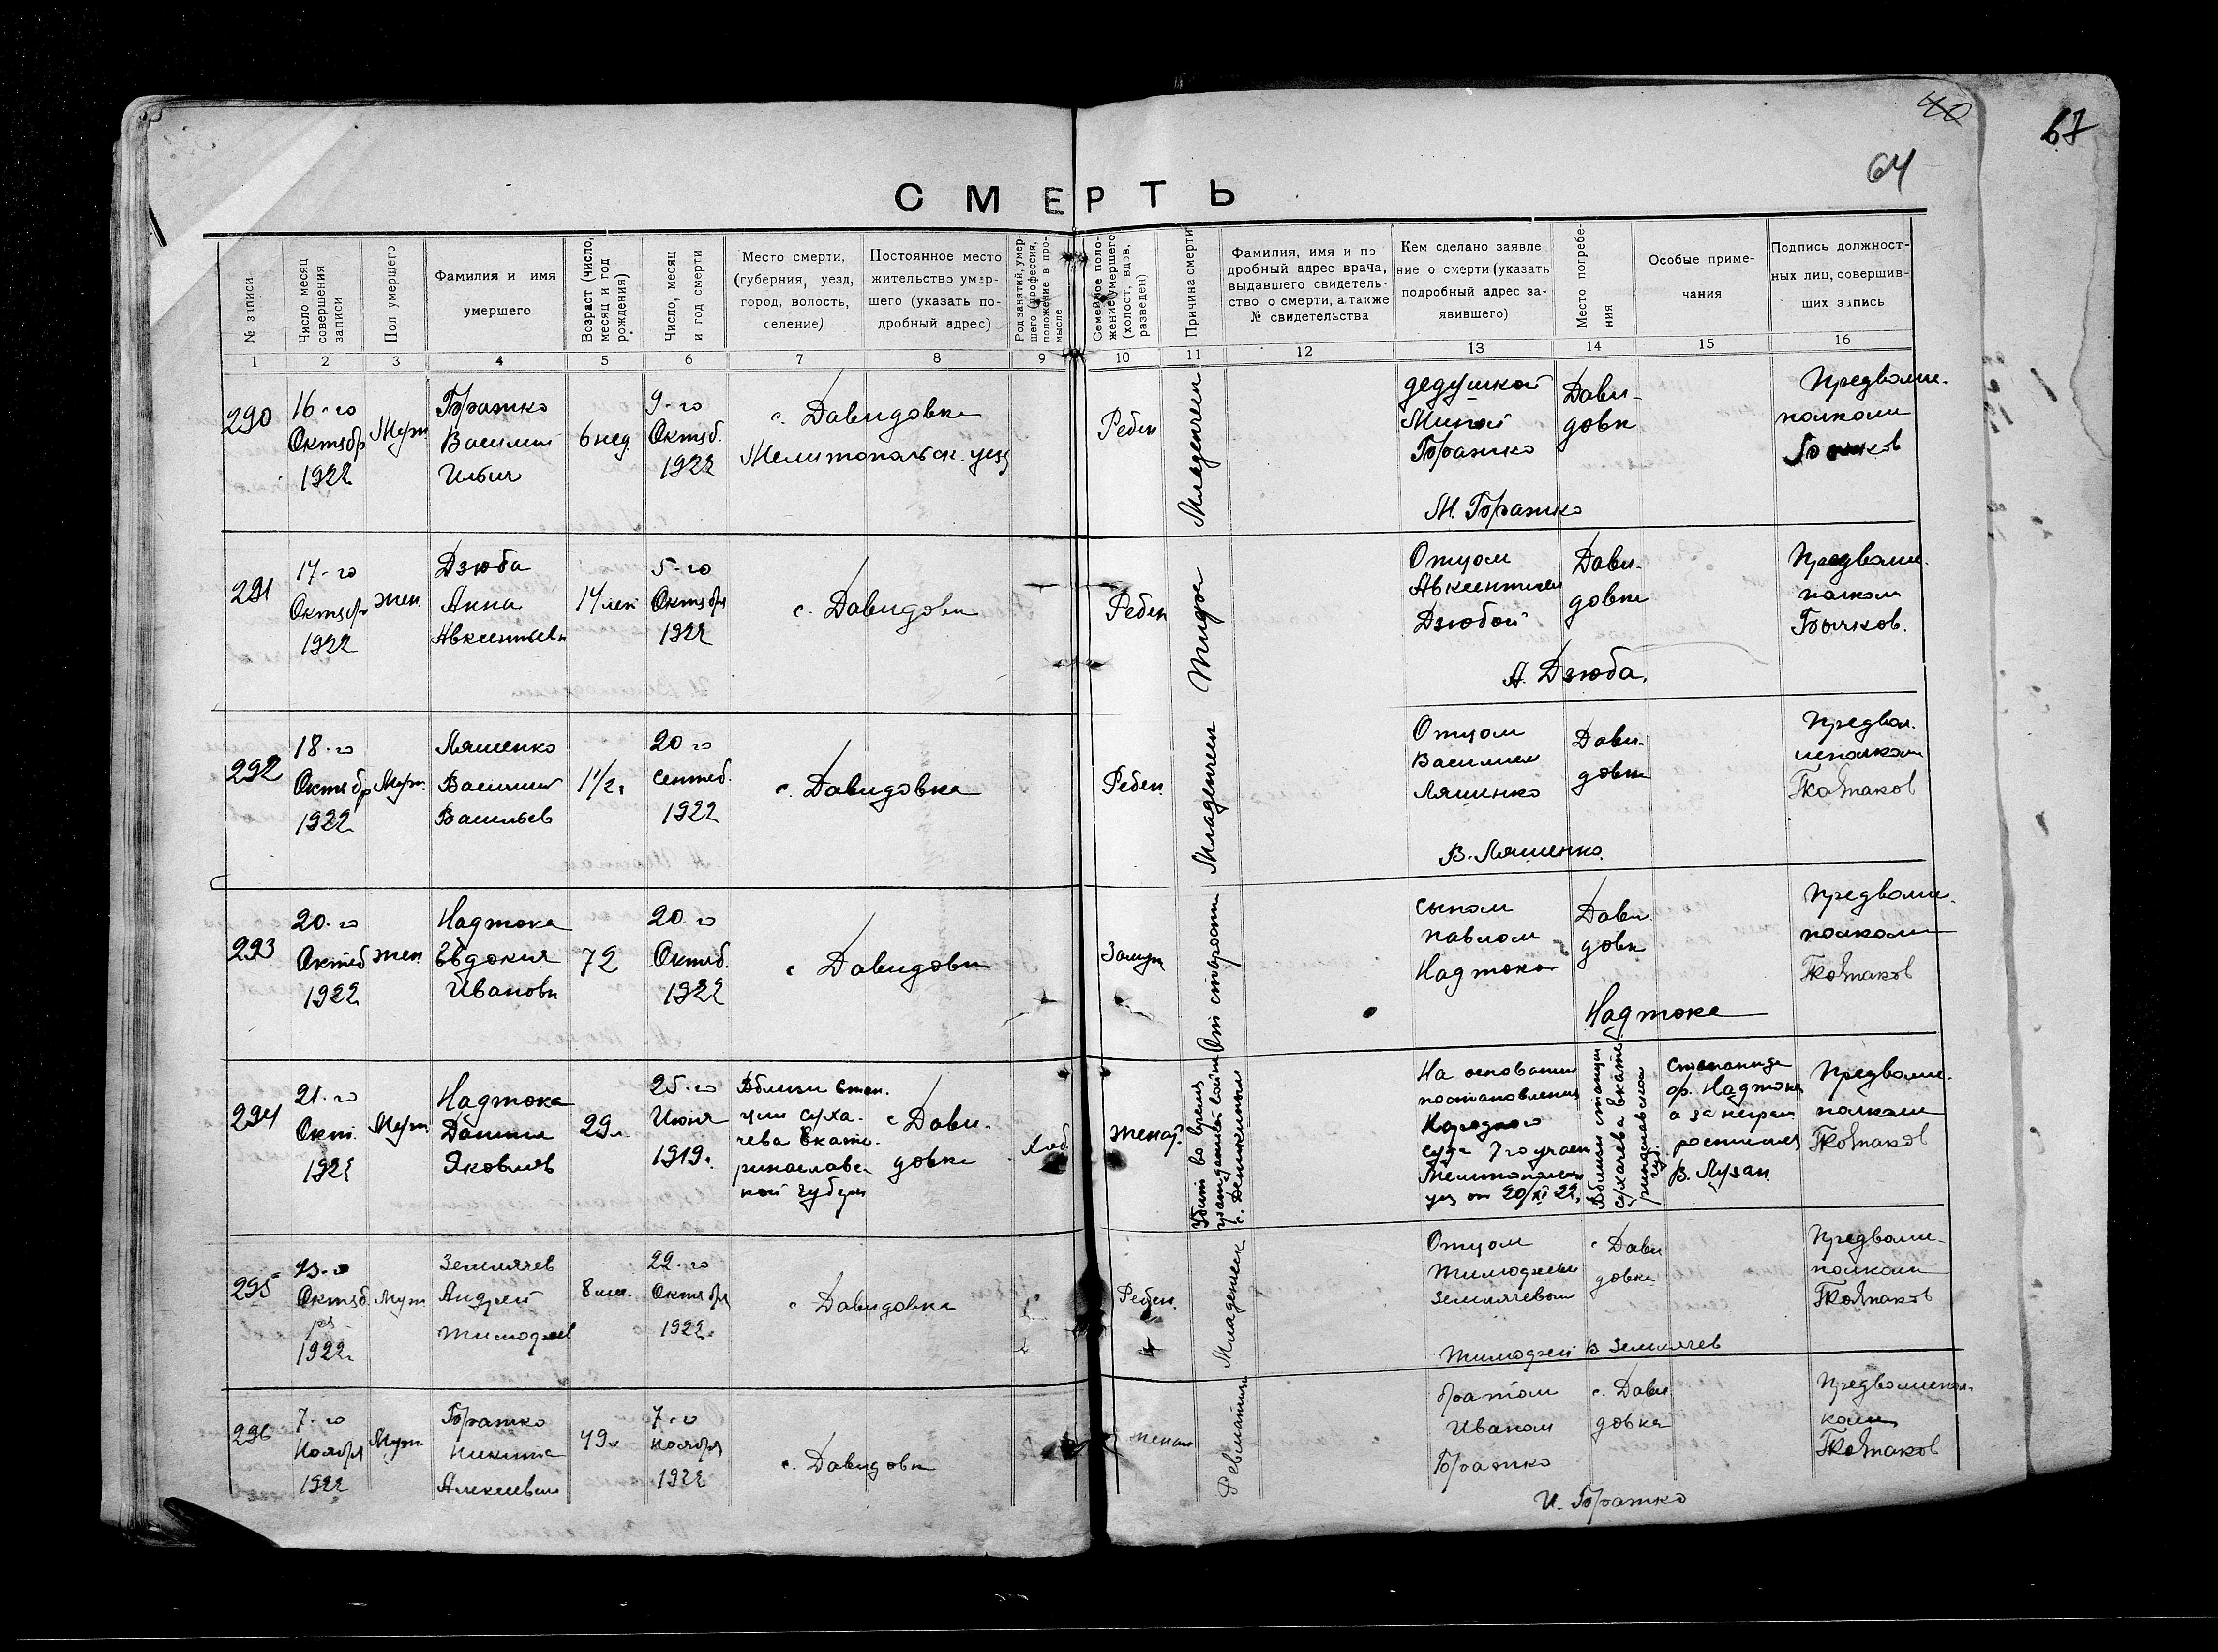 40
67
64
СМЕРТЬ
№ записи
Число месяц совершения записи
Пол умершего
Фамилия и имя умершего
Возраст (число, месяц и год рождения)
Число, месяц и год смерти
Место смерти, (губерния, уезд, город, волость, селение)
Постоянное место жительство умершего (указать подробный адрес)
Род занятий, умершего (профессия, положение в промысле
Семейное положение умершего (холост, вдов, разведен)
Причина смерти
Фамилия, имя и подробный адрес врача, выдавшего свидетельство о смерти, а также № свидетельства
Кем сделано заявление о смерти (указать подробный адрес заявившего)
Место погребения
Особые примечания
Подпись должностных лиц, совершивших запись
1 2 3 4 5 6 7 8 9 10 11 12 13 14 15 16
290
16-го
Октябр
1922
Муж.
Бражко
Василий
Ильич
6 нед.
9-го
Октяб.
1922
с. Давидовка
Мелитопольск. уезд
Ребен
Младенчен
дедушкой
Миной
Бражко
М. Бражко
Дави-
довк
Предволис-
полком
291
17-го
Октябр
1922
жен
Дзюба
Анна
Авксентьевн
14 лет
5-го
Октября
1922
с. Давидовк
Ребен
Тифа
Отцом
Авксентием
Дзюбой
А. Дзюба.
Дави-
довка
Предволис-
полком
Бычков.
292
18-го
Октябр
1922
Муж.
Ляшенко
Василий
Васильев
1 1/2 г
20 го
сентяб.
1922
с. Давидовка
Ребен
Младенчен
Отцом
Василием
Ляшенко
В. Ляшенко.
Дави-
довка
Предвол.
исполком
293
20-го
Октяб
1922
жен
Надтока
Евдокия
Ивановн
72
20 го
Октяб.
1922
с Давидовк
Замуж
От старости
сыном
павлом
Надтока
Надтока
Дави
довк
Предволис.
полком
294
21-го
Окт.
1922
Муж.
Надтока
Даниил
Яковлев
29 л.
25-го
Июня
1919 г.
Вблизи стан.
ции суха-
чева Екате-
ринославс-
кой губерн
с Дави-
довка
Хлеб
женат.
Убит во время
гражданской войны
с. Деникиным
На основании
постановления
Народного
суда 7го участ
Мелитопольск
уез от 20/XI 22.
Вблизи станции
сухачева Екате
ринославской
губ.
Степанида
ф. Надтока
а за неграм
росписался
В. Лузан
Предволис-
полком
295
23-го
Октяб.
ря
1922 г.
Муж
Землячев
Андрей
Тимофеев
8 мес.
22-го
Октября
1922 г.
с Давидовка
Ребен.
Младенческ
Отцом
Тимофеем
Землячевым
Тимофей В Землячев
с Дави
довка
Предволис-
полком
296
7-го
Ноября
1922
Муж.
Бражко
Никита
Алексеевич
49 л
7-го
Ноября
1922
с. Давидовк
женат
Ревматизм
братом
Иваном
Бражко
И. Бражко
с. Дави
довка
Предволиспол-
ком